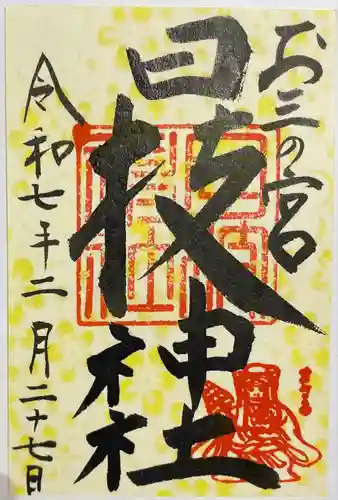 お三の宮
日枝神社
令和七年十二月二十七日